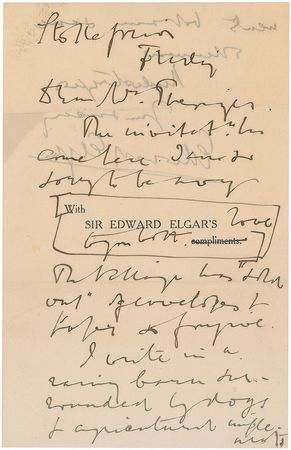 Stoke prior
Friday
Dear Mrs. Thesiger.
The invitatn. has
come here I am so
sorry to be away
With love
SIR EDWARD ELGAR'S
to you both. compliments.
The Village has "sold
out" of envelopes &
so forgive.
I write in a
barn sur-
rounded by dogs
& agricultural imple-
ments